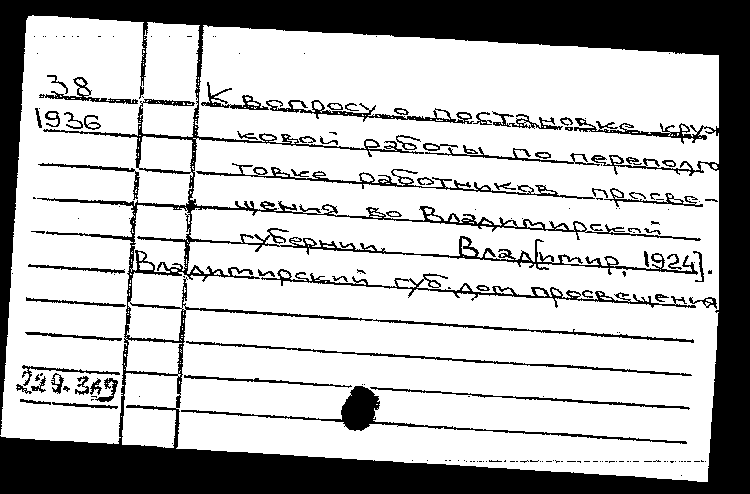 38
1936
К вопросу о постановке круж
ковой работы по переподго
товке работников просве-
щения во Владимирской
губернии. Влад[имир, 1924].
Владимирский губ. дом просвещения
229.369